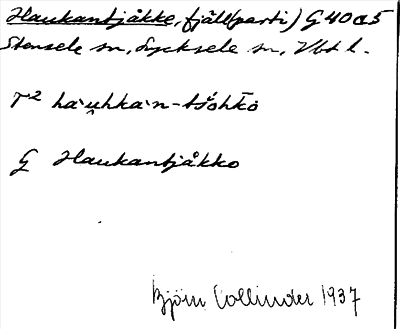 Haukantjåkke, fjäll(parti) G40a5
Stensele sn, Lycksele sn, Vbt l.
T² ha·u̯hka·n-tšŏhkō
G Haukantjåkko
Björn Collinder 1937